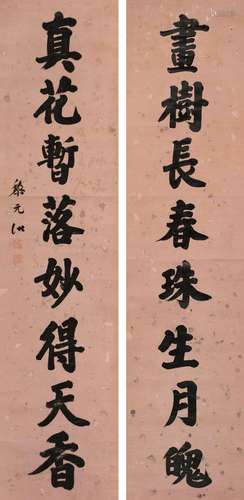 畫樹長春珠生月魄
真花暫落妙得天香
黎元洪